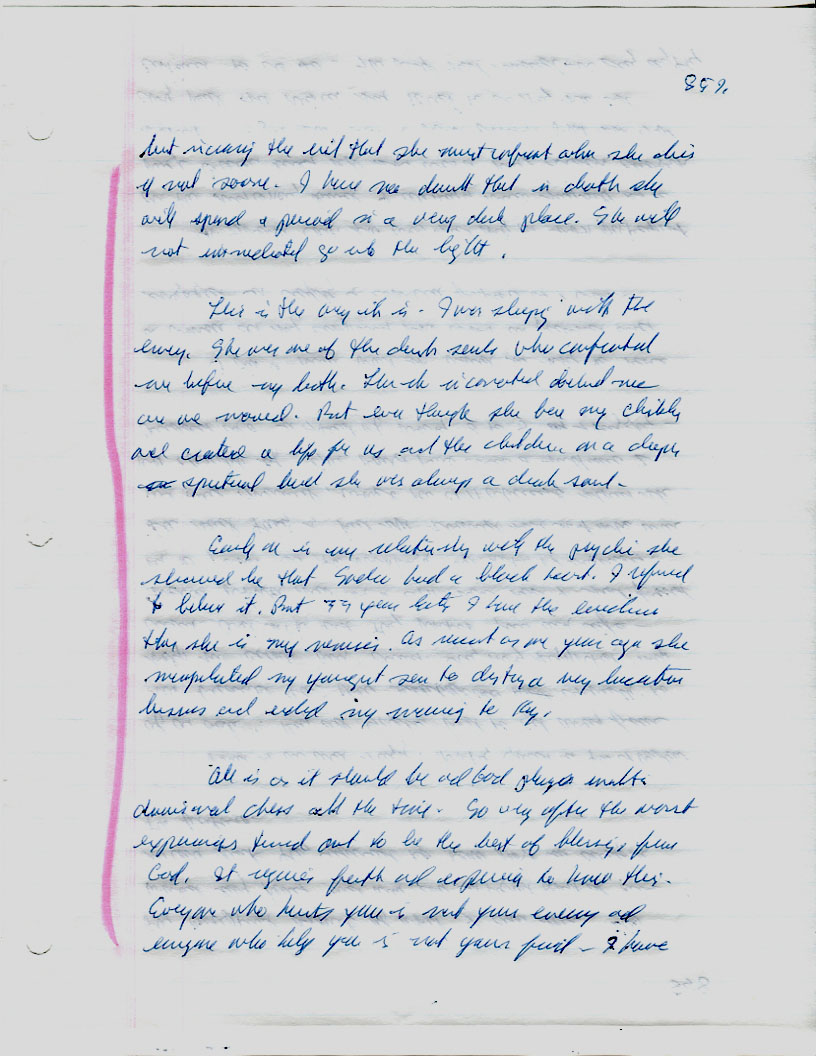 859.
but the evil that she must confront when she dies
if not sooner. I have no doubt that in death she
will spend a period in a very dark place. She will
not immediated go into the light.
This is the way it is. I was sleeping with the
enemy. She was one of the dark souls who confronted
me before my birth. me
and we moved. But even though she bore my children
and created a life for us and the children on a deeper
spiritual level she was always a dark soul.
Early on in my relationship with the psychic she
showed me that had a black heart. I refused
to believe it. But 33 years later I have the evidence
that she is my nemesis. As recent as one year ago she
manipulated my youngest son to destroy a very lucrative
business and ended my moving to
All is as it should be and God plays multi
dimensional chess all the time. So very often the worst
experiences turned out to be the best of blessings from
God. It requires faith and experience to know this.
Everyone who hurts you is not your enemy and
everyone who help you is not your friend - I have